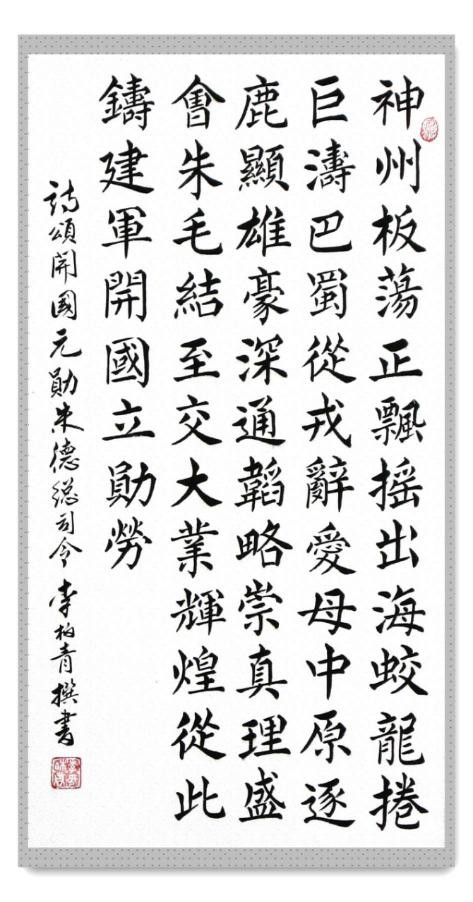 神州板蕩正飄摇出海蛟龍捲
巨濤巴蜀從戎辭愛母中原逐
鹿顯雄豪深通韜略崇真理盛
會朱毛結至交大業輝煌從此
鑄建軍開國立勛勞
詩頌開國元勛朱德總司令李柏青撰書